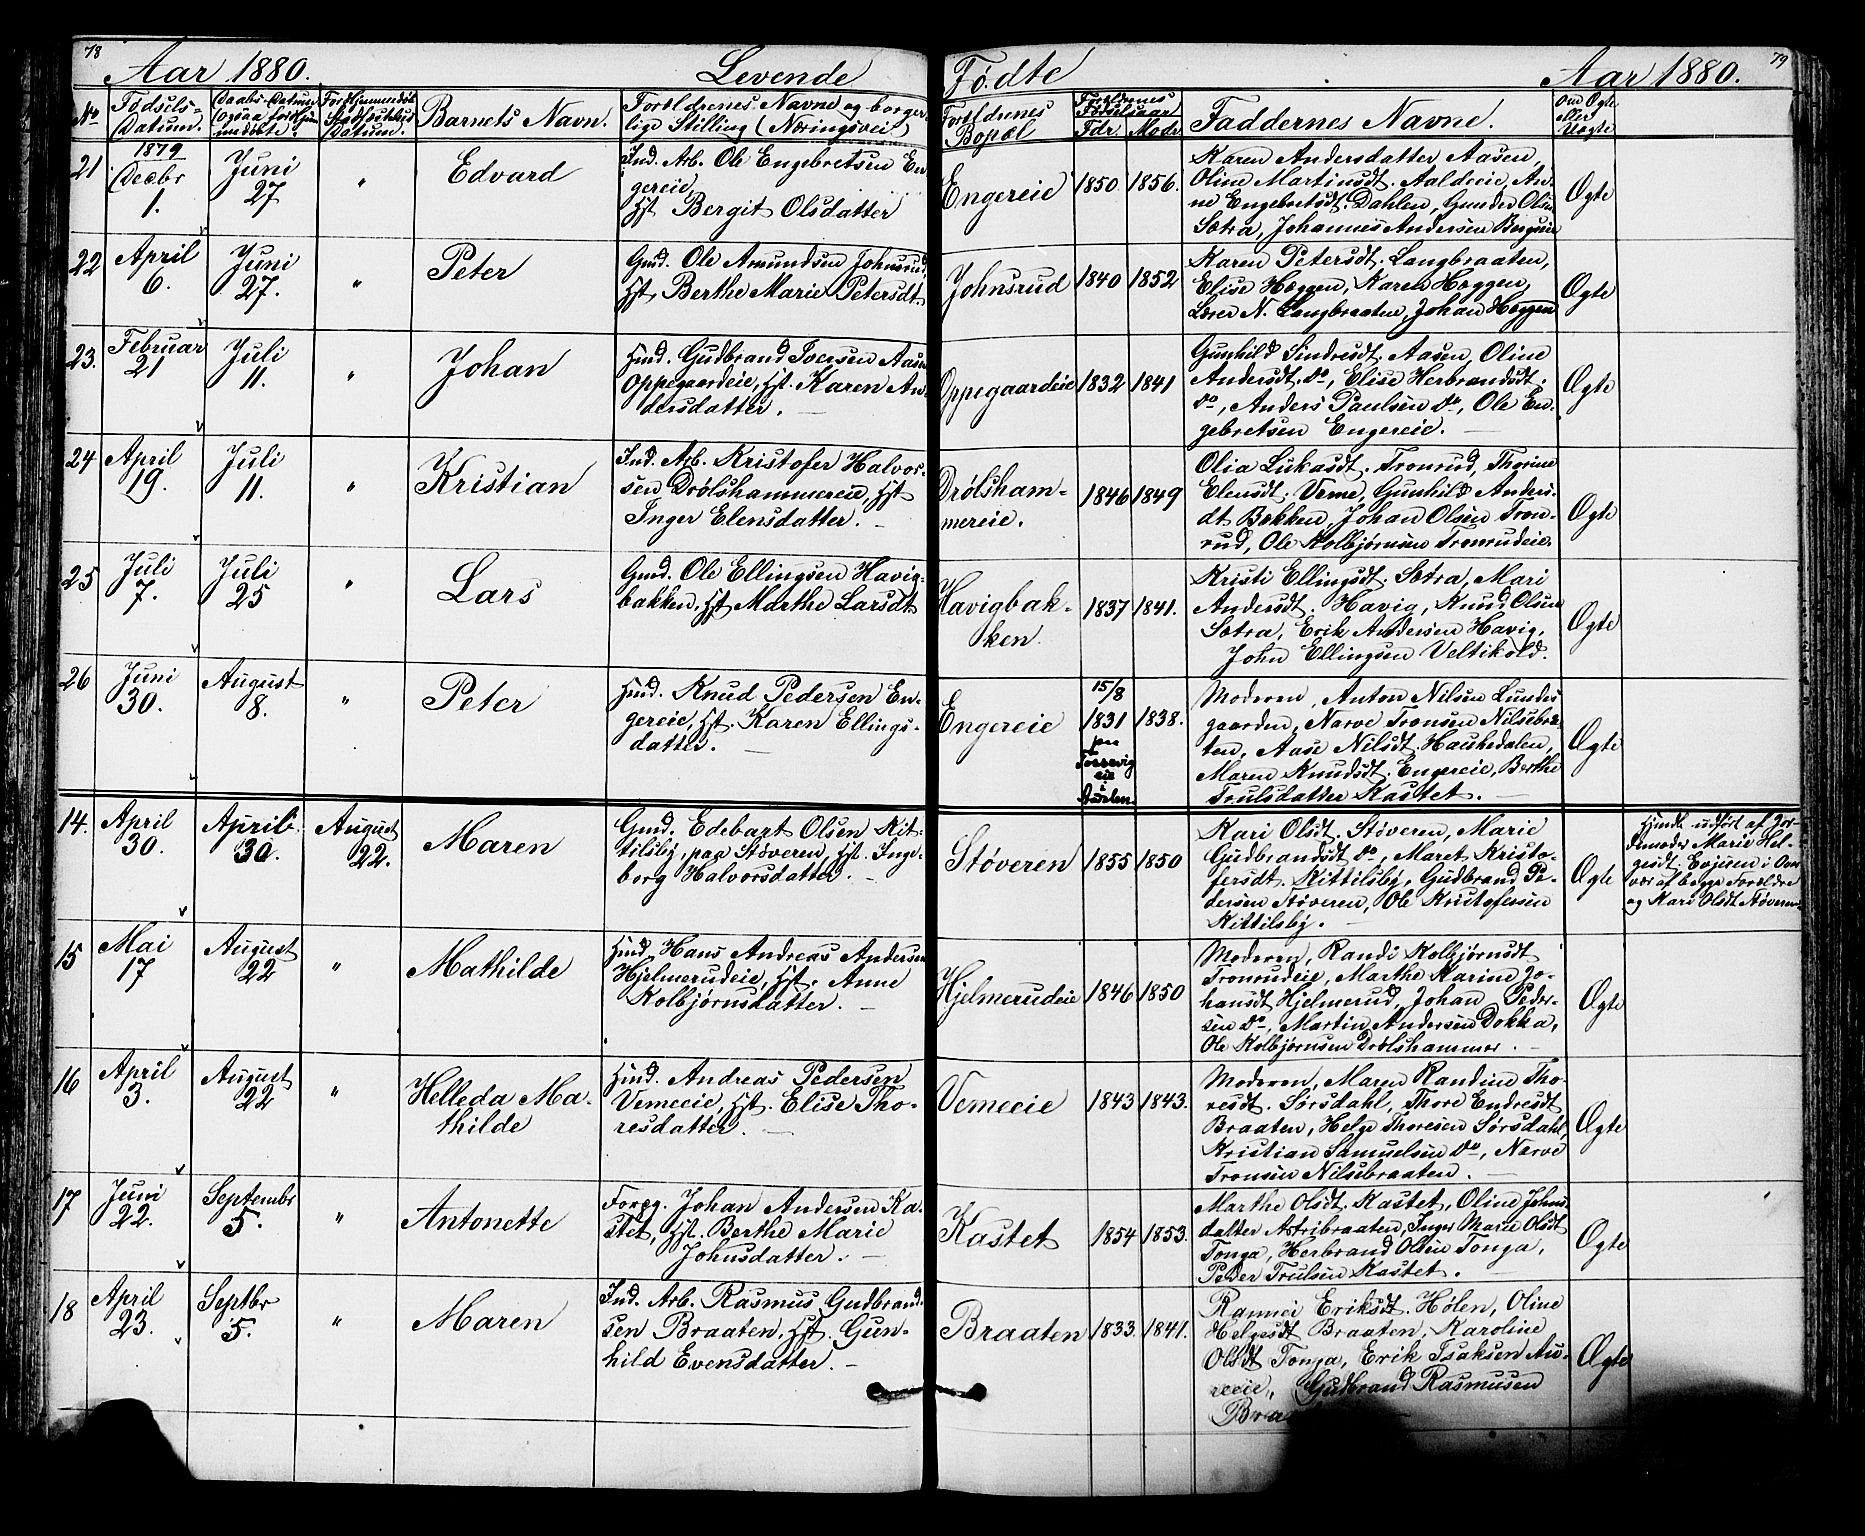 78
Aar 1880.
Levende
Fødte
Aar 1880.
79
No
Fødsels-
Datum.
Daabs-Datum
(ogsaa for Hjem-
medøbte).
For Hjemmedøbte
Stadfæstelses
Datum.
Barnets Navn.
Forældrenes Navne og borger-
lige Stilling (Næringsvei)
Forældrenes
Bopæl
Forældrenes
Fødselsaar
Fdr. Modr.
Faddernes Navne.
Om Ægte
eller
Uægte
21
1879
Decbr
1.
Juni
27
"
Edvard
Ind. Arb. Ole Engebretsen En-
gereie,
Hst Bergit Olsdatter
Engereie
1850. 1856.
Karen Andersdatter Aasen,
Oline Martinsdt. Aaldreie, An-
ne Engebretsdt. Dahlen, Gunder Olsen
Sætra, Johannes Andersen
Ægte
22
April
6.
Juni
27.
"
Peter
Gmd. Ole Amundsen Johnsrud,
Hst. Berthe Marie Petersdt.
Johnsrud
1840 1852
Karen Petersdt. Langbraaten,
Elise Hæggen, Karen Hæggen,
Lærer N. Langbraaten, Johan Hæggen
Ægte
23.
Februar
21
Juli
11.
"
Johan
Hmd. Gudbrand Iversen Aasen
Oppegaardeie, Hst. Karen An-
dersdatter. —
Oppegaardeie
1832 1841
Gunhild Sindresdt. Aasen, Oline
Andersdt. Do, Elise Herbrandsdt.
Do, Anders Paulsen Do, Ole En-
gebretsen Engereie. —
Ægte
24
April
19.
Juli
11.
"
Kristian
Ind. Arb. Kristofer Halvor-
sen Drølshammereie, Hst
Inger Elensdatter. —
Drølsham-
mereie.
1846 1849
Olia Lukasdt. Tronrud, Thorine
Elensdt. Veme, Gunhild Anders-
dt Bakken, Johan Olsen Tron-
rud, Ole Kolbjørnsen Tronrudeie.
Ægte
25
Juli
7.
Juli
25
"
Lars
Gmd. Ole Ellingsen Havig-
bakken, Hst Marthe Larsdt
Havigbak-
ken.
1837 1841.
Kristi Ellingsdt. Sætra, Mari
Andersdt. Havig, Knud Olsen
Sætra, Erik Andersen Havig,
John Ellingsen Veltikold.
Ægte
26
Juni
30.
August
8.
"
Peter
Hmd. Knud Pedersen En-
gereie, Hst. Karen Ellings-
datter. —
Engereie
15/8
1831 1838.
paa
eie
i
Moderen, Anton Nilsen Lunde-
gaarden, Narve Tronsen Nilsebra-
ten, Aase Nilsdt. Haukedalen,
Maren Knudsdt. Engereie, Berthe
Trulsdatter Kastet. —
Ægte
14.
April
30.
April
30.
August
22.
Maren
Gmd. Edebart Olsen Kit-
tilsby, paa Støveren, Hst. Inge-
borg Halvorsdatter. —
Støveren
1855 1850
Kari Olsdt. Støveren, Marie
Gudbrandsdt Do, Maret Kristo-
fersdt. Kittilsby, Gudbrand Pe-
dersen Støveren, Ole Kristofersen
Kittilsby. —
Ægte
Hjmdb. udført af Jor-
demoder Marie Hel-
gesdt. Evjuen i Over-
vær af begge Forældre
og Kari Olsdt Støveren
15
Mai
17
August
22
"
Mathilde
Hmd Hans Andreas Andersen
Hjelmerudeie, Hst. Anne
Kolbjørnsdatter. —
Hjelmerudeie
1846 1850
Moderen, Randi Kolbjørnsdt
Tronrudeie, Marthe Karine Jo-
hansdt Hjelmerud, Johan Peder-
sen Do, Martin Andersen Dokka,
Ole Kolbjørnsen Drølshammer. —
Ægte
16
April
3.
August
22
"
Helleda Ma-
thilde
Hmd. Andreas Pedersen
Vemeeie, Hst. Elise Tho-
resdatter. —
Vemeeie
1843 1843.
Moderen, Maren Randine Tho-
resdt. Sørsdahl, Thore Endresdt
Braaten, Helge Thoresen Sørsdahl,
Kristian Samuelsen Do, Narve
Tronsen Nilsebraaten. —
Ægte
17
Juni
22.
Septembr
5.
"
Antonette
Forpg. Johan Andersen Ka-
stet, Hst. Berthe Marie
Johnsdatter. —
Kastet
1854 1853.
Marthe Olsdt. Kastet, Oline Johns-
datter Astribraaten, Inger Marie Olsdt
Tonga, Herbrand Olsen Tonga,
Peder Trulsen Kastet. —
Ægte
18
April
23.
Septbr
5.
"
Maren
Ind. Arb. Rasmus Gudbrand-
sen Braaten, Hst. Gun-
hild Evensdatter. —
Braaten
1833. 1841.
Rannei Eriksdt. Hølen, Oline
Helgesdt Braaten, Karoline
Olsdt Tonga, Erik Isaksen Au-
reeie, Gudbrand Rasmusen
Ægte